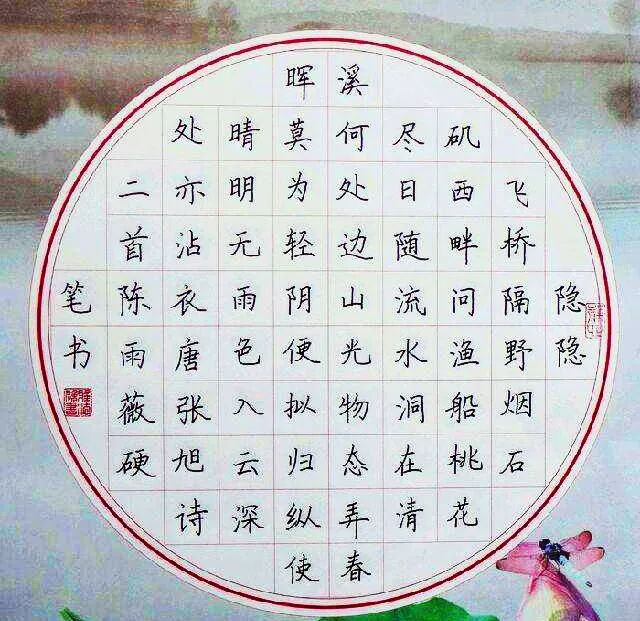 隐隐
飞桥隔野烟石
矶西畔问渔船桃花
尽日随流水洞在清
溪何处边山光物态弄春
晖莫为轻阴便拟归纵使
晴明无雨色入云深
处亦沾衣唐张旭诗
二首陈雨薇硬
笔书